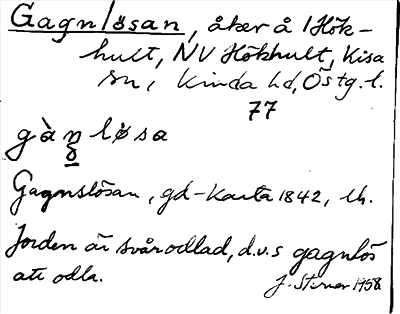 Gagnlösan, åker å 1 Hök-
hult, NV Hökhult, Kisa
sn, Kinda hd, Östg. l.
77
gànløsa
Gagnslösan, gd-karta 1842, lh.
Jorden är svårodlad, d.v.s gagnlös
att odla.
J. Stener 1958